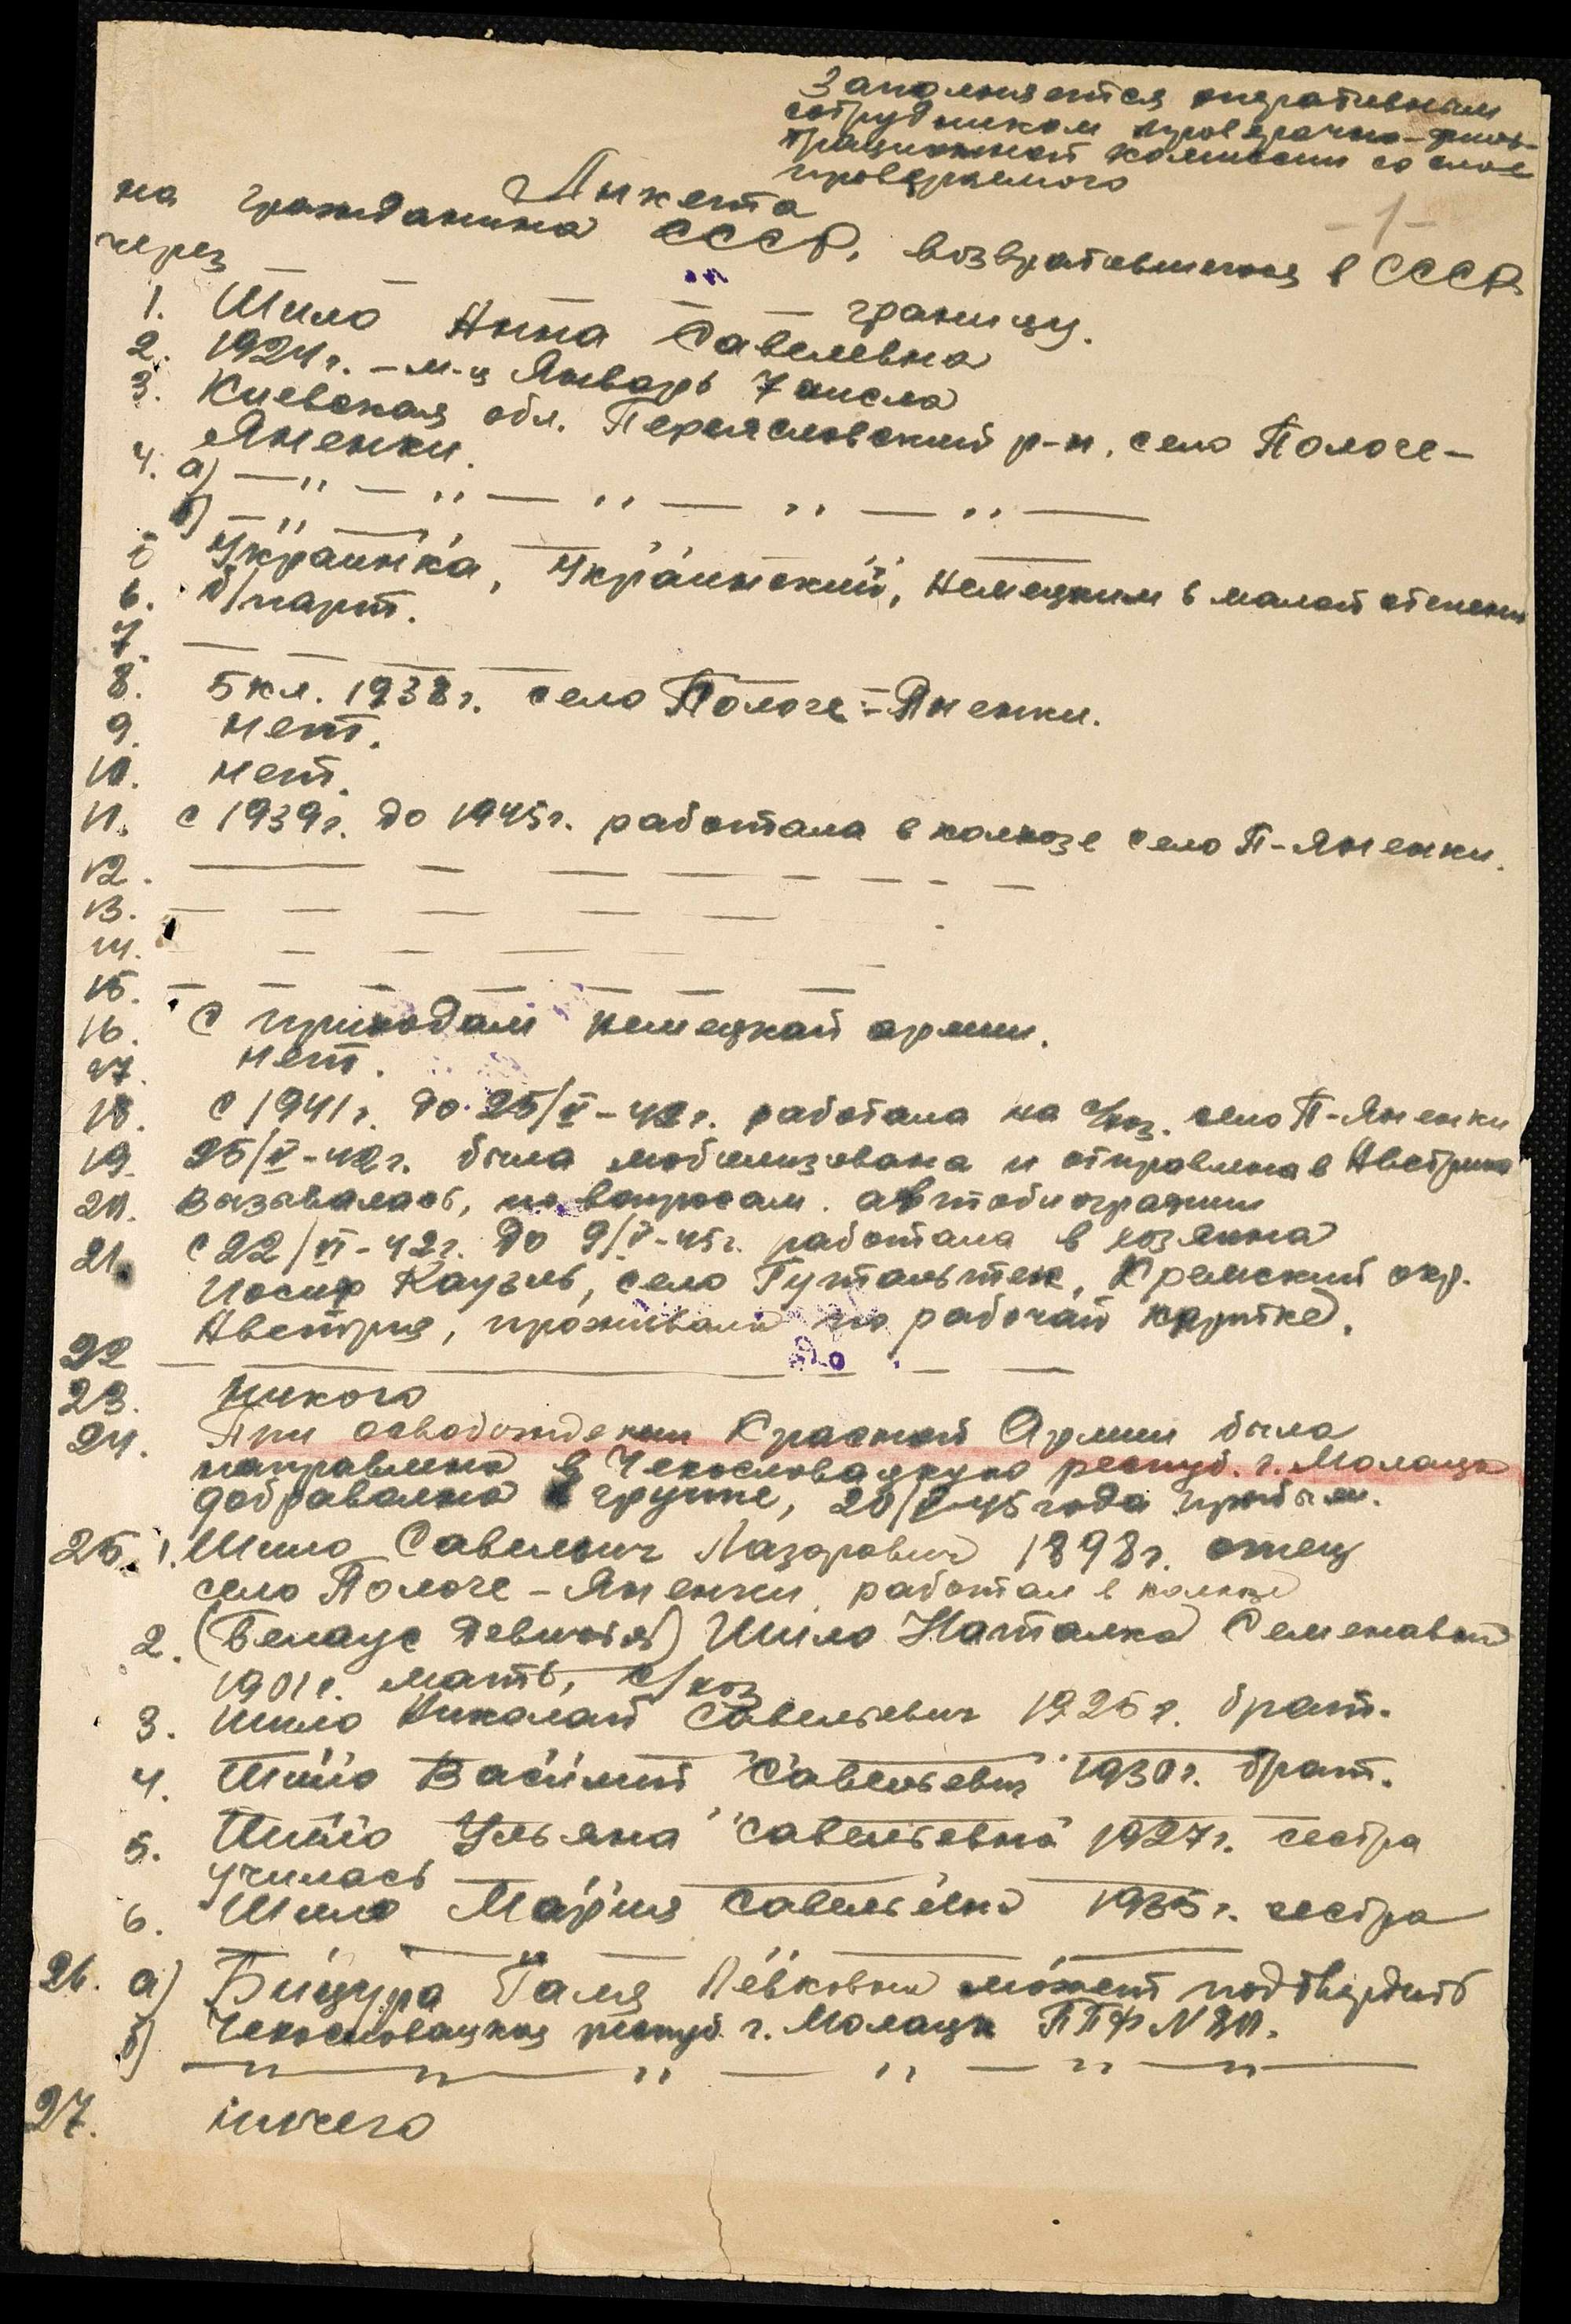 Заполняется оперативным
сотрудником проверочно-фильт-
рационной комиссии со слов
проверяемого
-1-
Анкета
на гражданина СССР, возвратившегося в СССР
через — — — — границу.
1. Шило Анна Савелевна
2. 1924 г. – м-ц Январь 7 числа
3. Киевская обл. Переясловский р-н, село Пологе-
Яненки.
4. а) — " — " — " — " — " —
б) — " — " — " — " —
5 Украинка, Украинский, Немецким в малой степени
6. б/парт.
7. — — — —
8. 5 кл. 1938 г. село Пологе-Яненки.
9. нет.
10. нет.
11. с 1939 г. до 1945 г. работала в колхозе село П-Яненки.
12. — — — — — — — —
13. — — — — —
14. — — — — —
15. — — — — — — —
16. С приходам немецкай армии.
17. нет.
18. с 1941 г. до 25/V-42 г. работала на с/хоз. село П-Яненки
19. 25/V-42 г. была мобилизована и отправлена в Австрию
20. Вазывалась, по вопросам автобиографии
21. с 22/VI-42 г. до 9/V-45 г. работала в хозяина
Иосиф Каузль, село Гутальтек, Кремский окр.
Австрия, проживала по рабочай картке.
22 — — — — —
23. никого
24. При освобождении Красной Армии была
направлена в Чехословацкую респуб. г. Малацк
добравалка в группе, 20/V-45 года прибыл.
25. 1. Шило Савелович Лазарович 1898 г. отец
село Пологе-Яненки, работал в колхозе
2. (Белаус девичья) Шило Наталка Семенавна
1901 г. мать, с/хоз
3. Шило Николай Савельевич 1925 г. брат.
4. Шило Василий Савельевич 1930 г. брат.
5. Шило Ульяна Савельевна 1927 г. сестра
училась
6. Шило Мария Савельевна 1935 г. сестра
26. а) Бицура Галя Лёвковна может подтвердить
б) Чехословацкая респуб. г. Малацк ППФ N 30.
— " — " — " — " — " — " —
27. ничего